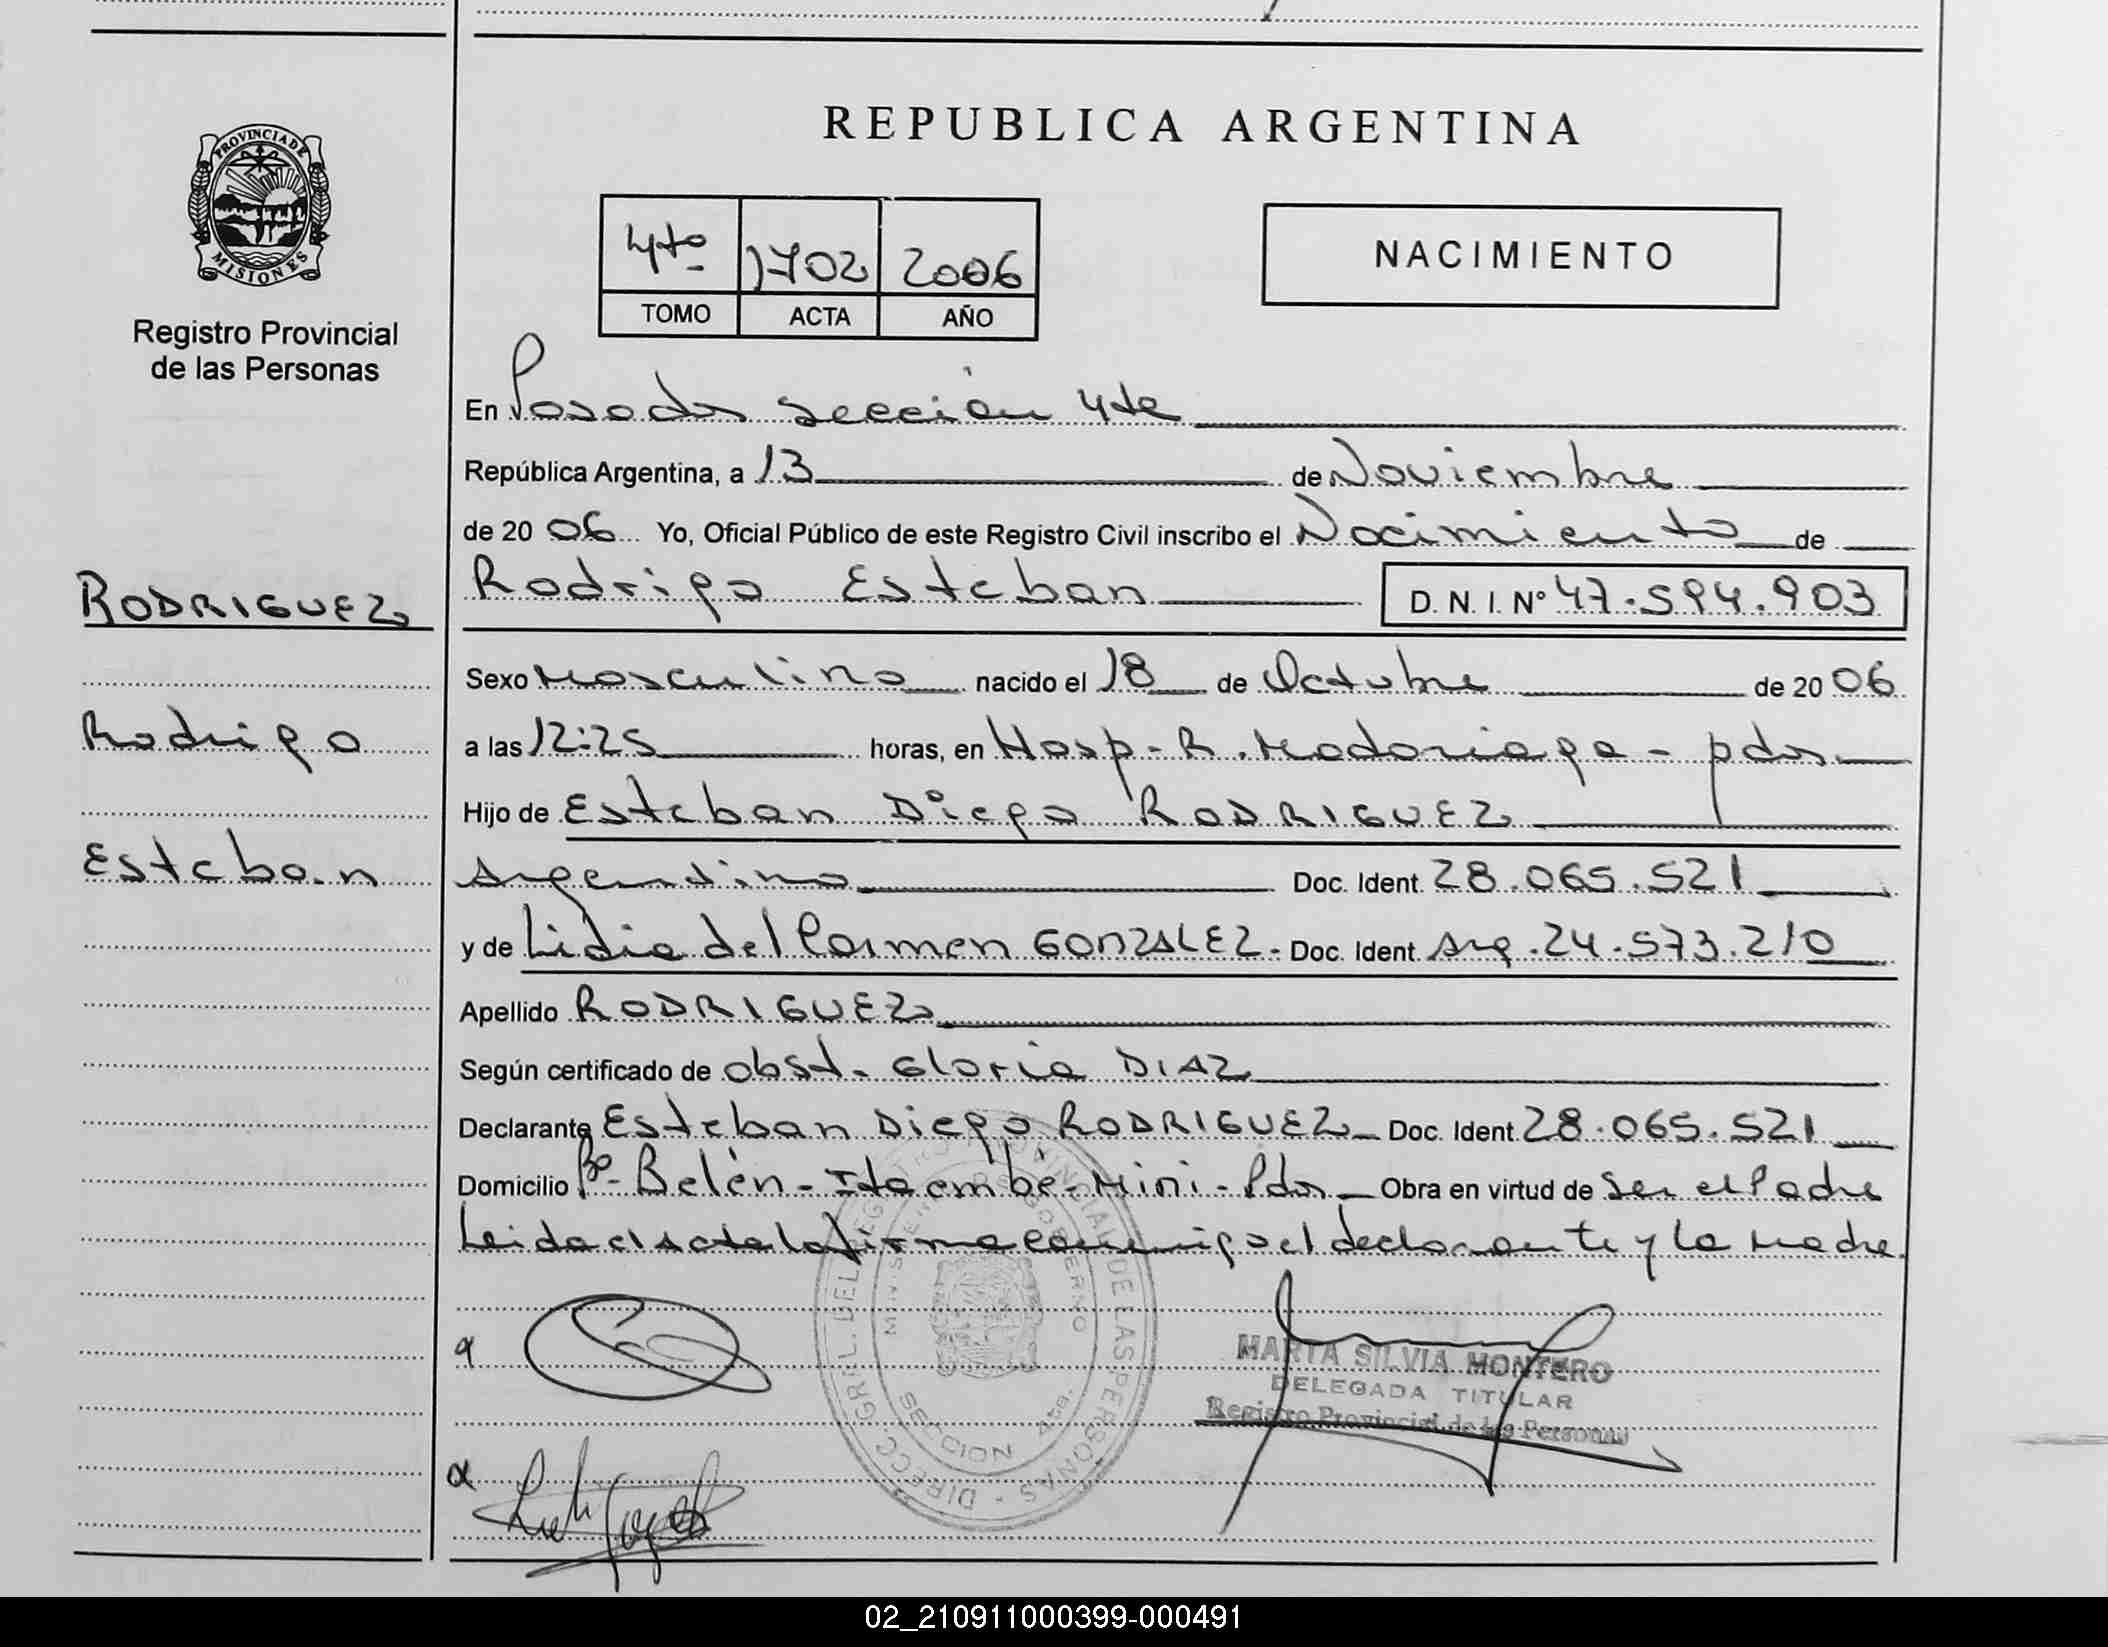 REPUBLICA ARGENTINA
PROVINCIA DE MISIONES
Registro Provincial
de las Personas
4to 1702 2006
TOMO ACTA AÑO
NACIMIENTO
En Posadas sección 4ta
República Argentina, a 13 de Noviembre
de 2006 Yo, Oficial Público de este Registro Civil inscribo el Nacimiento de
RODRIGUEZ
Rodrigo Esteban D. N. I. Nº 47.594.903
Sexo Masculino nacido el 18 de Octubre de 2006
Rodrigo
a las 12:25 horas, en Hosp. R. Madariaga - pdas
Hijo de Esteban Diego RODRIGUEZ
Esteban
Argentino Doc. Ident. 28.065.521
y de Lidia del Carmen GONZALEZ. Doc. Ident. Arg. 24.573.210
Apellido RODRIGUEZ
Según certificado de obst. Gloria DIAZ
Declarante Esteban Diego RODRIGUEZ Doc. Ident. 28.065.521
Domicilio Bº Belén - Itaembé - Mini - Pdas Obra en virtud de ser el Padre
Leida el Acta la firma conmigo el declarante y la Madre.
DIRECC. GRAL. DEL REGISTRO PROVINCIAL DE LAS PERSONAS
GOBIERNO
SECCION 4ta.
MARTA SILVIA MONTERO
DELEGADA TITULAR
Registro Provincial de las Personas
02_210911000399-000491